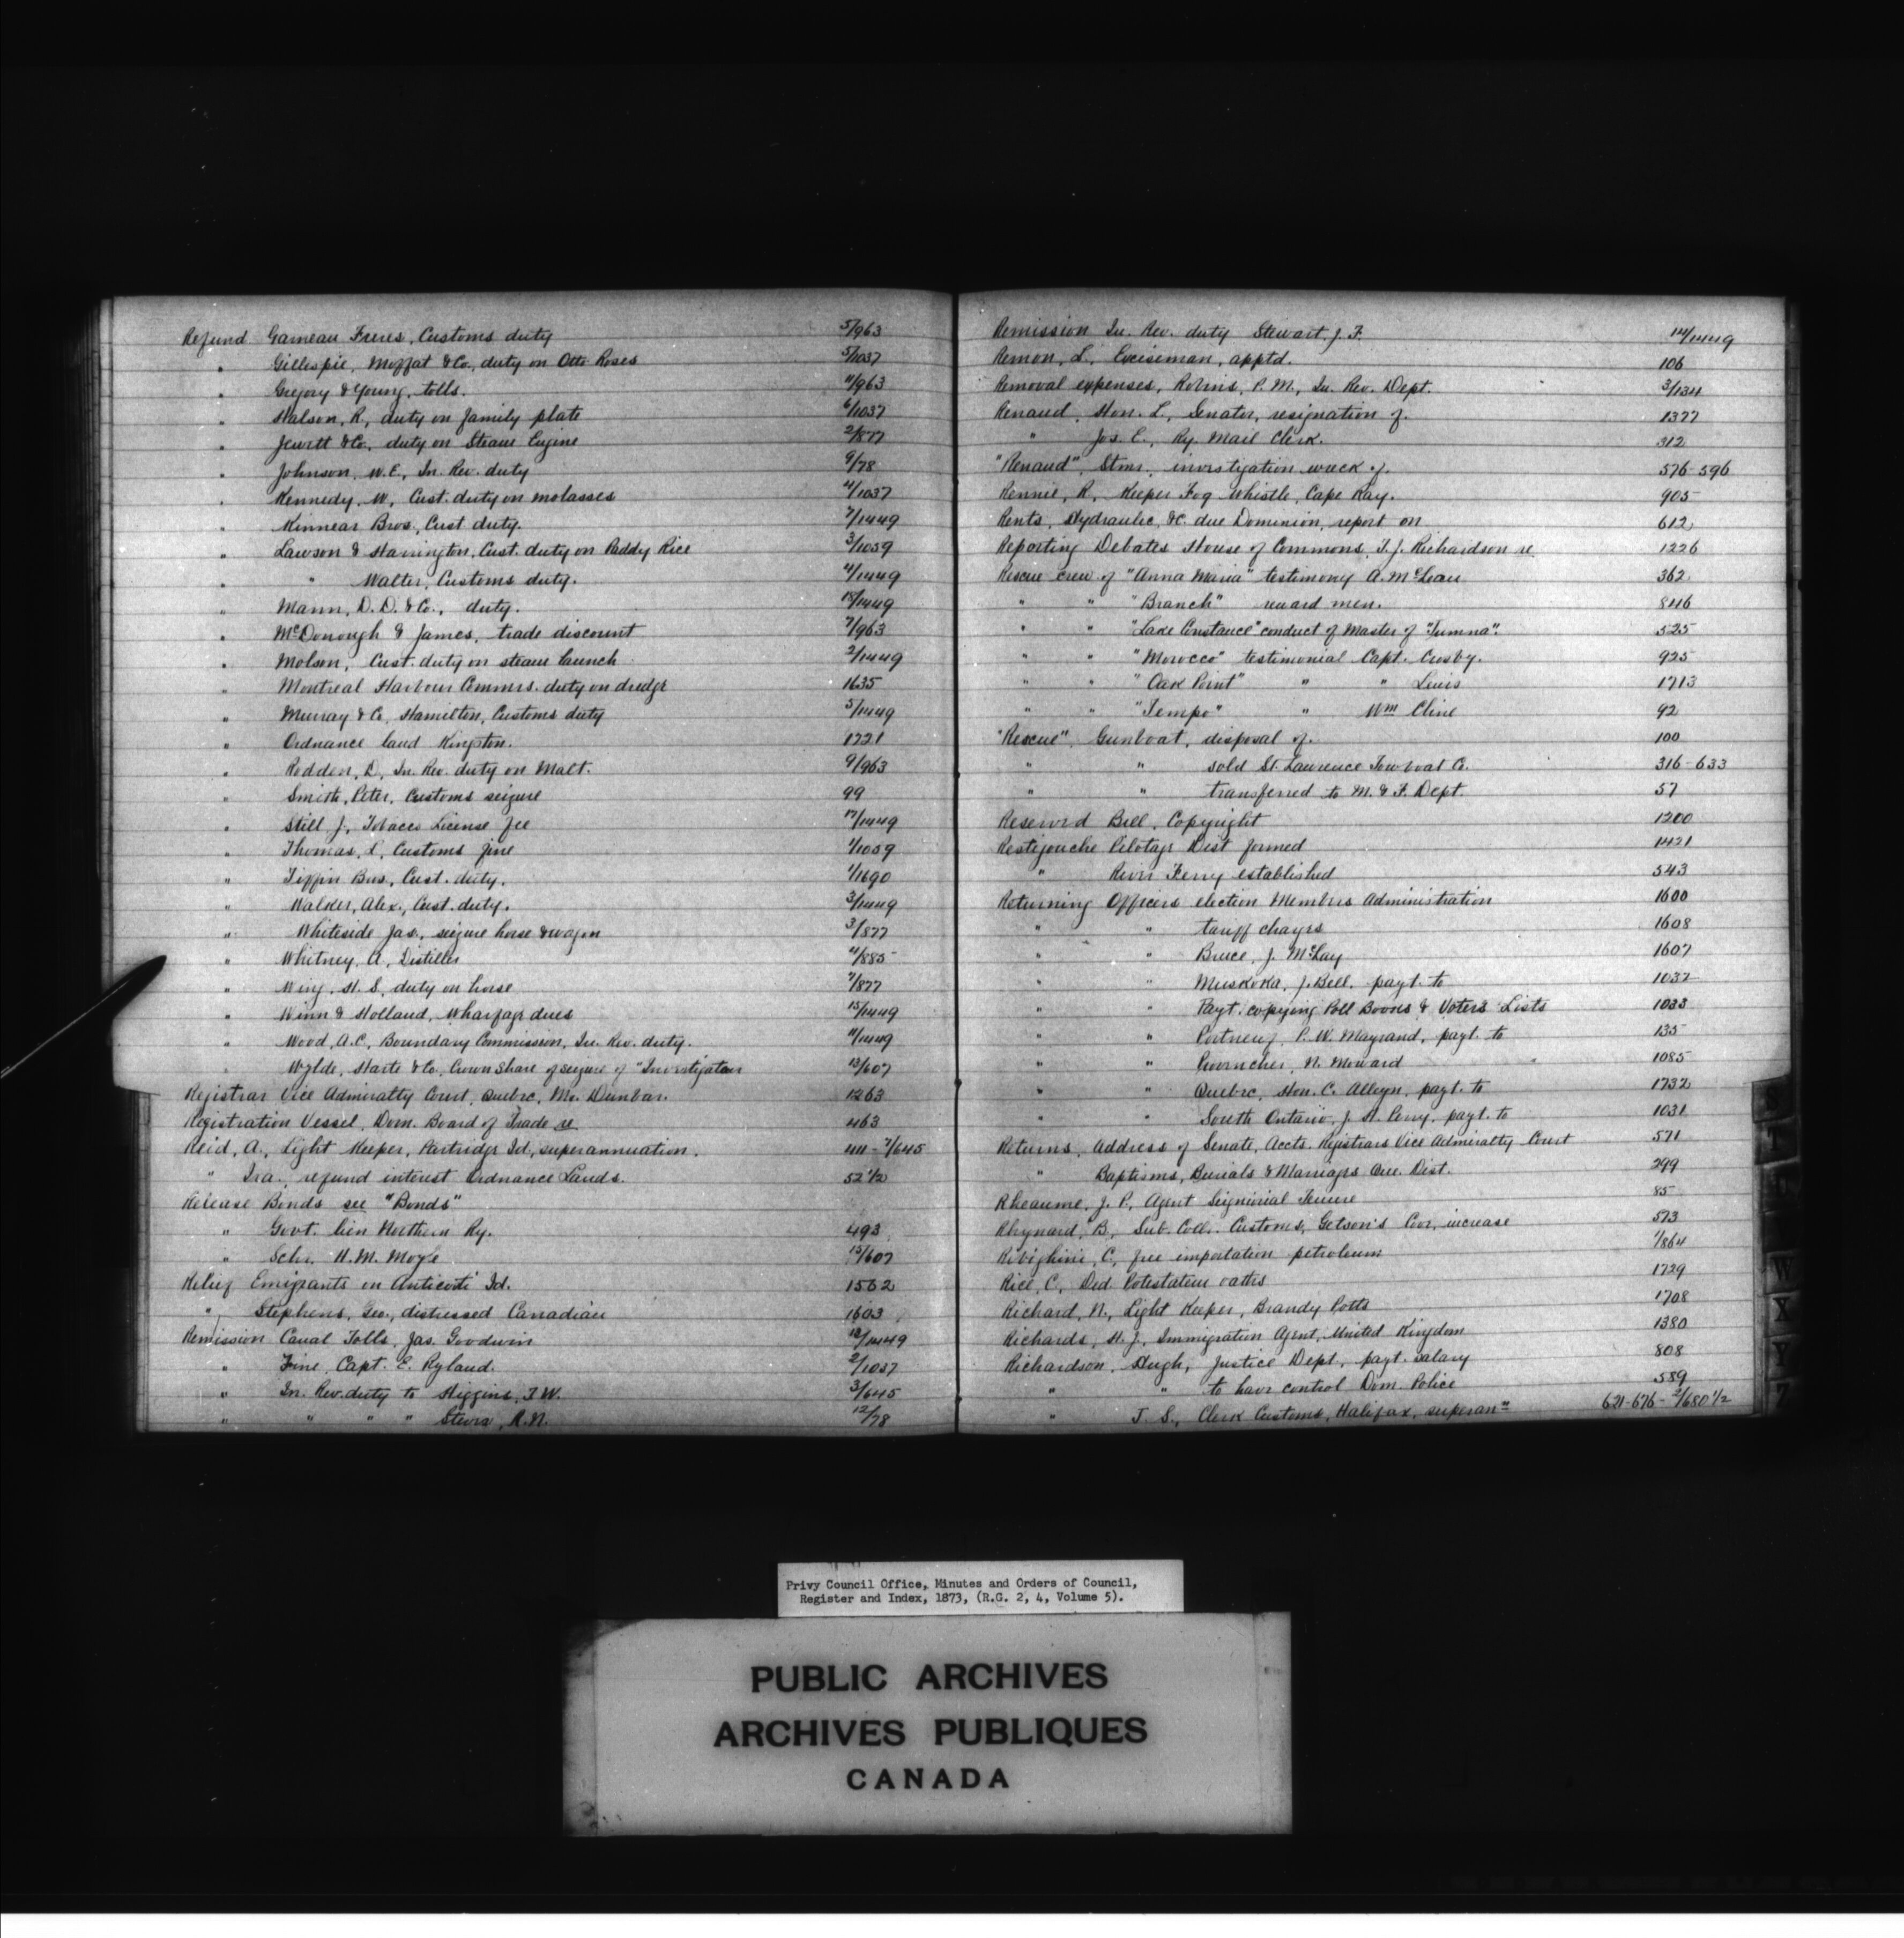 Refund Garneau Freres, Customs duty 5/963
" Gillespie, Moffat & Co., duty on Otto Roses 5/1037
" Gregory & Young, tolls. 11/963
" Halson, R, duty on family plate 6/1037
" Jewett & Co, duty on Steam Engine 2/877
" Johnson, W.E., In. Rev. duty 9/78
" Kennedy, W, Cust. duty on molasses 4/1037
" Kinnear Bros., Cust duty. 7/1449
" Lawson & Harrington, Cust. duty on Paddy Rice 3/1059
" " Walter, Customs duty. 4/1449
" Mann, D. D. & Co., duty. 18/1449
" McDonough & James, trade discount 7/963
" Molson, Cust. duty on steam launch 2/1449
" Montreal Harbour Commrs. duty on dredge 1635
" Murray & Co, Hamilton, Customs duty 5/1449
" Ordnance land Kingston. 1721
" Rodden, D, In. Rev. duty on Malt. 9/963
" Smith, Peter, Customs seizure 99
" Still J., Tobacco License fee 17/1449
" Thomas, L, Customs fine 1/1059
" Tiffin Bros, Cust. duty. 1/1690
" Walker, Alex., Cust. duty. 3/1449
" Whiteside Jas., seizure horse & wagon 3/877
" Whitney, A, Distiller 4/885
" Wing, H. S, duty on horse 7/877
" Winn & Holland, Wharfage dues 15/1449
" Wood, A.C, Boundary Commission, In. Rev. duty. 11/1449
" Wylde, Harte & Co, Crown Share of seizure of "Investigator 13/607
Registrar Vice Admiralty Court, Quebec, Mr. Dunbar. 1263
Registration Vessel, Dom. Board of Trade re 463
Reid, A., Light Keeper, Partridge Id, superannuation. 411 - 7/645
" Ira., refund interest Ordnance Lands. 52 1/2
Release Bonds see "Bonds"
" Govt. lien Northern Ry. 493
" Schr. H. M. Moyle 15/607
Relief Emigrants on Anticosti Id. 1562
" Stephens, Geo, distressed Canadian 1603
Remission Canal Tolls, Jas. Goodwin 12/1449
" Fine, Capt. E. Ryland. 2/1037
" In. Rev. duty to Higgins, T.W. 3/645
" " " " Steura, R.N. 12/78
Remission In. Rev. duty Stewart, J. F. 14/1449
Remon, L., Exciseman, apptd. 106
Removal expenses, Robins, P. M., In. Rev. Dept. 3/1311
Renaud, Hon. L, Senator, resignation of. 1377
" Jos. E., Ry. Mail Clerk. 312
"Renaud", Stmr, investigation wreck of. 576-596
Rennie, R, Keeper Fog Whistle, Cape Ray. 905
Rents, Hydraulic, &c. due Dominion, report on 612
Reporting Debates House of Commons, T. J. Richardson re. 1226
Rescue crew of "Anna Maria" testimony A. McLean 362
" " "Branch" reward men. 846
" " "Lake Constance" conduct of Master of "Jumna". 525
" " "Morocco" testimonial Capt. Crosby. 925
" " "Oak Point" " " Lewis 1713
" " "Tempo" " Wm Cline 92
"Rescue", Gunboat, disposal of. 100
" " sold St. Lawrence Towboat Co. 316-633
" " transferred to M. & F. Dept. 57
Reserved Bill, Copyright 1200
Restigouche Pilotage Dist formed 1421
" River Ferry established 543
Returning Officers election Members Administration 1600
" " tariff charges 1608
" " Bruce, J. McLay 1607
" " Muskoka, J. Bell, payt. to 1032
" " Payt. copying Poll Books & Voters' Lists 1033
" " Portneuf, P. W. Mayrand, payt. to 135
" " Provencher, N. Moward " 1085
" " Quebec, Hon. C. Alleyn, payt. to 1732
" " South Ontario, J. H. Perry, payt. to 1031
Returns, Address of Senate, Accts. Registrars Vice Admiralty Court 571
" Baptisms, Burials & Marriages Que. Dist. 299
Rheaume, J. P., Agent Seigniorial Tenure 85
Rhynard, B., Sub. Coll. Customs, Getson's Cove, increase 573
Ribighini, C, free importation petroleum 1/864
Rice, C, Ded. Potestatem oaths 1729
Richard, N., Light Keeper, Brandy Potts 1708
Richards, H. J., Immigration Agent, United Kingdom 1380
Richardson, Hugh, Justice Dept, payt. salary 808
" " to have control Dom. Police 589
" J. S., Clerk Customs, Halifax, superann 621-676-2/680 1/2
S
T
W
X
Y
Z
Privy Council Office, Minutes and Orders of Council,
Register and Index, 1873, (R.G. 2, 4, Volume 5).
PUBLIC ARCHIVES
ARCHIVES PUBLIQUES
CANADA